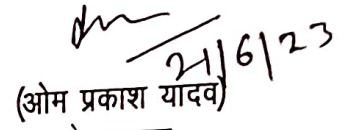 21/6/23
(ओम प्रकाश यादव)